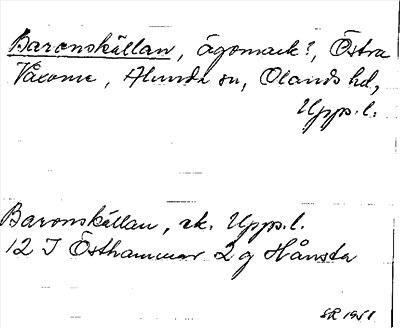 Baronskällan, ägomark?, Östra
Väsome, Alunda sn, Olands hd,
Upps. l.
Baronskällan, ek. Upps. l.
12 I Östhammar 2 g Hånsta
SR 1951